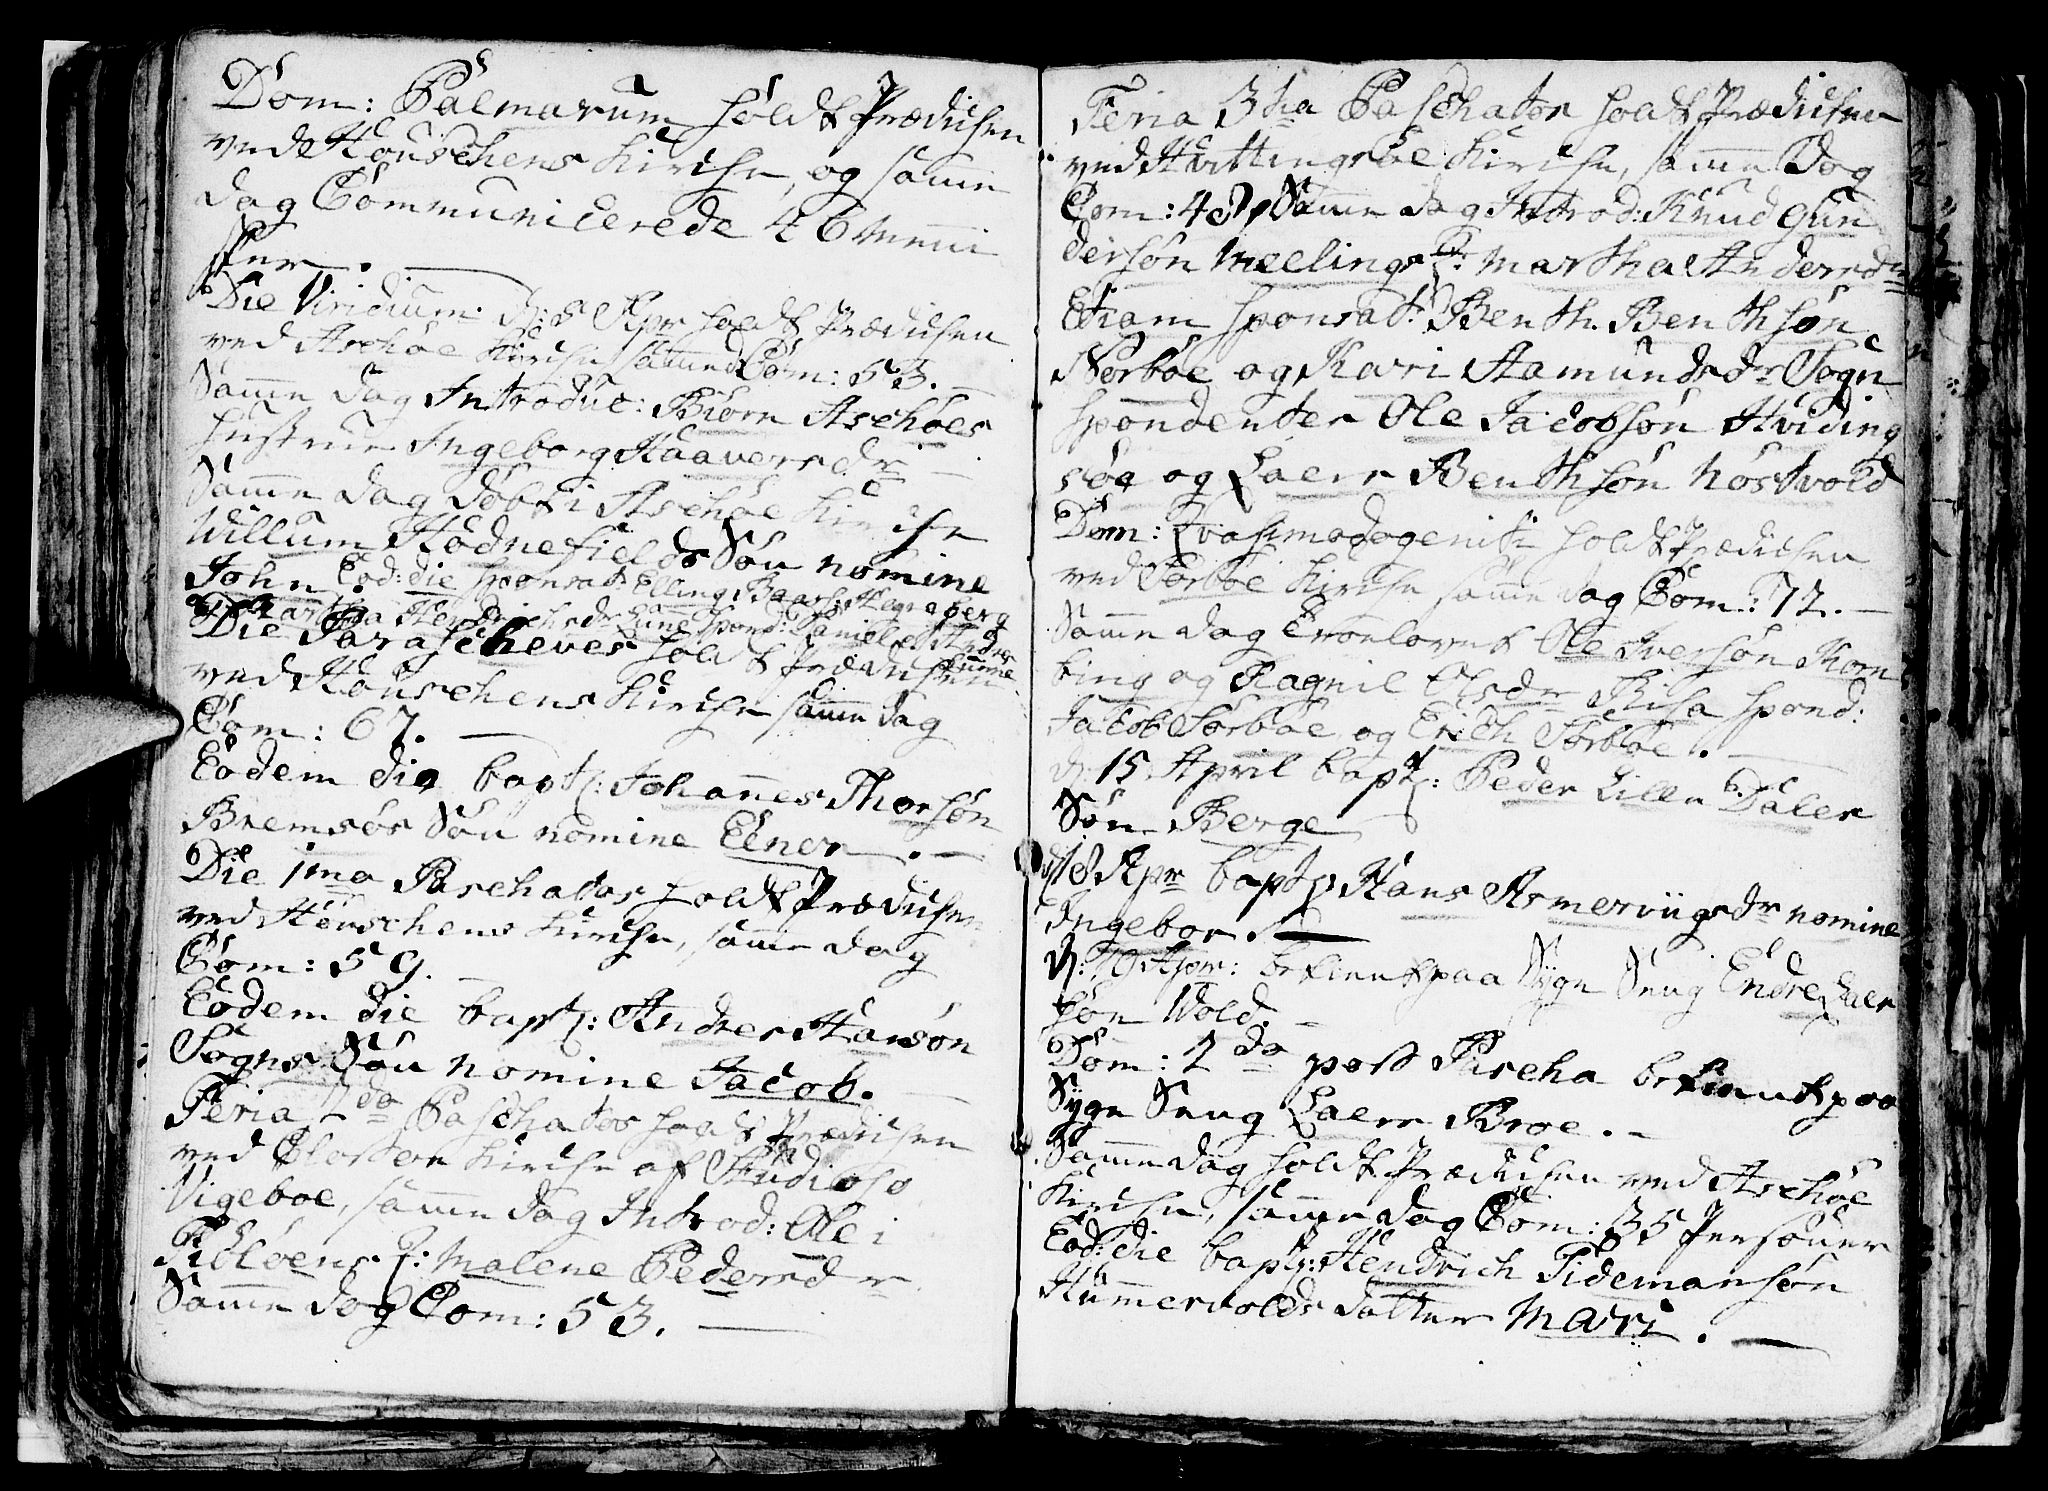 Dom: Palmarum holdt Prædichen
ved Houschens Kirche, og samme
dag Communicerede 46 menni
sker.
Die Viridium d: 5 Apr holdt Prædichen
ved Aschøe Kirche samme d Com: 53.
Samme dag Introduc: Biørn Aschøes
hustrue Ingeborg Haaversdr
Samme dag døbt i Aschøe Kirche
Willum Hodnefields Søn nomine
John. Eod: die sponsat: Elling Haaversberg
Martha Hendrichsdr Lunne spond: Daniel og Anders
Lunne
Die Parascheves holdt Prædichen
ved Houschens Kirche samme dag
Com: 67.
Eodem die bapt: Johannes Thorsøn
Bremsøs Søn nomine Elner.
Die 1ma Paschatos holdt Prædichen
ved Houschens Kirche, samme dag
Com: 59.
Eodem die bapt: Andres Hansøn
Sogns Søn nomine Jacob.
Feria 2da Paschatos holdt Prædichen
ved Closter Kirche af Studioso
Vigeboe, samme dag Introd: Ole i
Fiøløens q: Malene Pedersdr
Samme dag Com: 53.
Feria 3tia Paschatos holdt Prædichen
ved Hvittingsøe Kirche, samme Dag
Com: 48. Samme dag Introd: Knud Gun
dersøn Meelings q: Martha Andersdr
Etiam sponsat: Benth Benthsøn
Norbøe og Kari Aamundsdr Sogn
spondenter Ole Jacobsøn Hviding
søe og Laers Benthsøn Nostvold
Dom: Qvasimodogeniti holdt Prædichen
ved Sørbøe Kirche samme dag Com: 72.
Samme dag Troelovet Ole Iversøn Horn
bing og Ragnil Olsdr Risa spond:
Jacob Sørbøe og Erich Sørbøe.
d: 15 April bapt: Peder Lille Dales
Søn Berge
d: 18 Apr bapt: Hans Armeriigs dr nomine
Ingebor.
d: 19 Apr: betient paa Syge Seng Endre Laer
søn Wold.
Dom: 2da post Pascha betient paa
Syge Seng Laers Broe.
Samme dag holdt Prædichen ved Aschøe
Kirche, samme dag Com: 35 Personer
Eod: die bapt: Hendrich Tidemansøn
Hummervolds datter Mari.